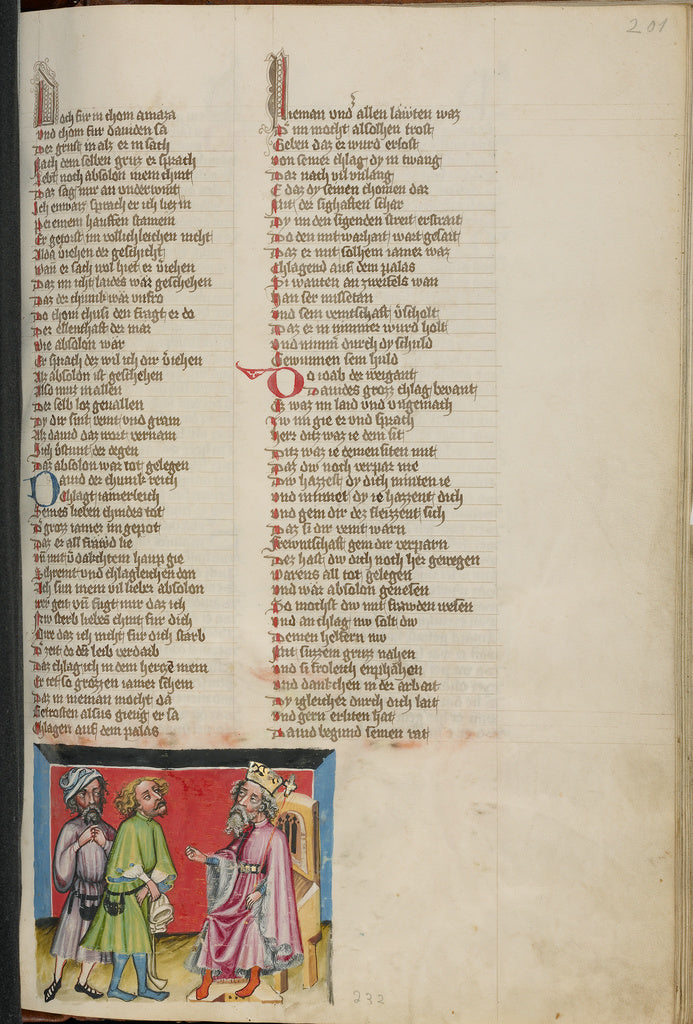 201
Noch fur in chom amaza
und chom fur dauiden sa
Der grust in als er in sach
Nach dem selben gruz er sprach
Lebt noch absolon mein chint
Daz sag mir an underwint
Ich enwaiz sprach er ich liez in
Pei einem hauffen
Er getorst im vollichleichen nicht
veriehen der geschicht
wan er sach wol hiet er veriehen
Daz im icht laides wär geschehen
Daz der chunik wär unfro
Do chom chusi den fragt er do
Der ellenschaft der mär
wie absolon wär
Er sprach der wil ich dir veriehen
Als absolon ist geschehen
Also muz in allen
Der selb loz geuallen
Dy dir sint veint vnd gram
Als dauid daz wort vernam
der degen
Daz absolon war tot gelegen
Dauid der chunik reich
Chlagt iamerleich
Seines lieben chindes tot
Sein groz iamer im gepot
Daz er all frawd lie
mit haup gie
Schreint vnd chlagleichen don
Ach sun mein vil lieber absolon
wer geit vnd fugt mir daz ich
Nw sterb liebes chint fur dich
Awe daz ich nicht fur dich starb
zeit do dein leib verdarb
Daz chlag ich in dem herczen mein
Er tet so grozzen iamer schein
Daz in nieman mocht da
Getrosten alsus gieng er sa
Chlagen auf dem palas
Nieman vnd allen läwten waz
Der im mocht alsolhen trost
Geben daz er wurd erlost
von seiner chlag dy in twang
Dar nach vil vnlang
E daz dy seinen chomen dar
Mit der sighaften schar
Dy im den sigenden streit erstrait
Do den mit warhait wart gesait
Daz er mit solhem iamer waz
Chlagend auf dem palas
Si wanten an zweifels wan
han ser missetan
vnd sein veintschaft verscholt
Daz er in nimmer wurd holt
vnd nimmer durch dy schuld
Gewinnen sein huld
Do ioab der weigant
Dauides grozz chlag bevant
Ez waz im laid vnd vngemach
Zw im gie er vnd sprach
herr ditz waz ie dein sit
Ditz waz ie deinen siten mit
Daz dw noch verpar nie
Dw hazzest dy dich minten ie
vnd minnet dy ie hazzent dich
vnd gein dir dez fleizzent sich
Daz si dir veint warn
frewntschaft gein dir verparn
Der hast dw dich noch her gewegen
Warens all tot gelegen
vnd war absolon genesen
So mochst dw mit frawden wesen
vnd an chlag nw solt dw
Deinen helfern nw
Mit suzzem gruzz nahen
vnd si froleich enphahen
vnd dankchen in der arbait
Dy igleicher durch dich lait
vnd gern erliten hat
Dauid begund seinen rat
232